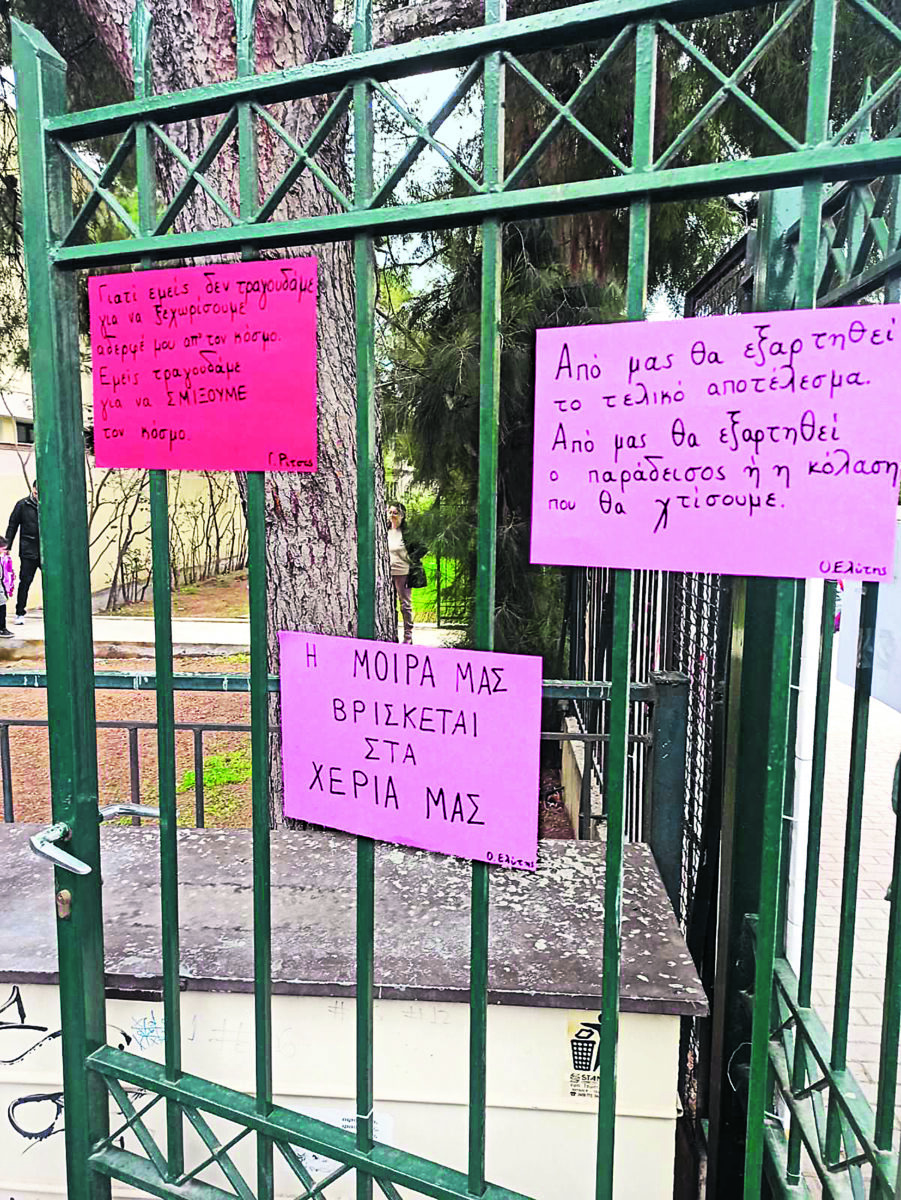 Γιατί εμείς δεν τραγουδάμε
για να ξεχωρίσουμε
αδερφέ μου απ' τον κόσμο.
Εμείς τραγουδάμε
για να ΣΜΙΞΟΥΜΕ
τον κόσμο.
Γ. Ρίτσος
Από μας θα εξαρτηθεί
το τελικό αποτέλεσμα.
Από μας θα εξαρτηθεί
ο παράδεισος ή η κόλαση
που θα χτίσουμε.
Ο. Ελύτης
Η ΜΟΙΡΑ ΜΑΣ
ΒΡΙΣΚΕΤΑΙ
ΣΤΑ
ΧΕΡΙΑ ΜΑΣ
Ο. Ελύτης